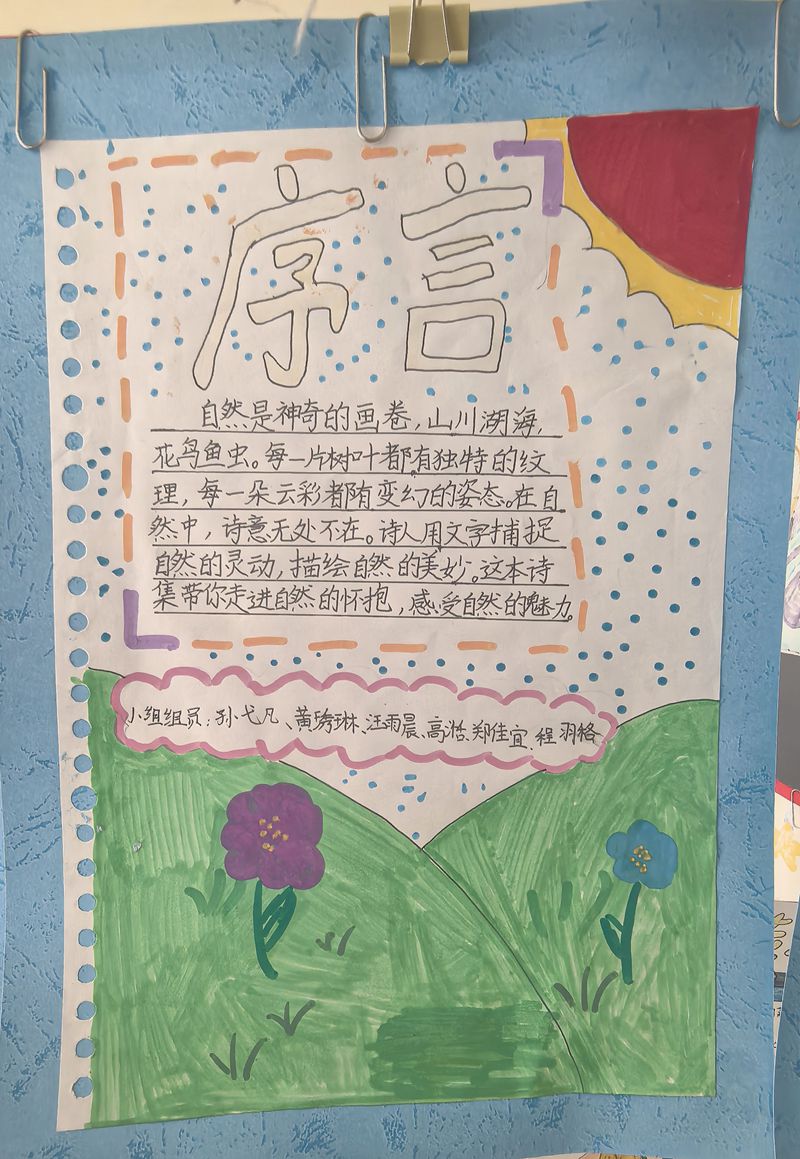 序言
自然是神奇的画卷，山川湖海，
花鸟鱼虫。每一片树叶都有独特的纹
理，每一朵云彩都有变幻的姿态。在自
然中，诗意无处不在。诗人用文字捕捉
自然的灵动，描绘自然的美妙。这本诗
集带你走进自然的怀抱，感受自然的魅力。
小组组员：孙弋凡、黄琇琳、汪雨晨、高浩、郑佳宜、程羽格